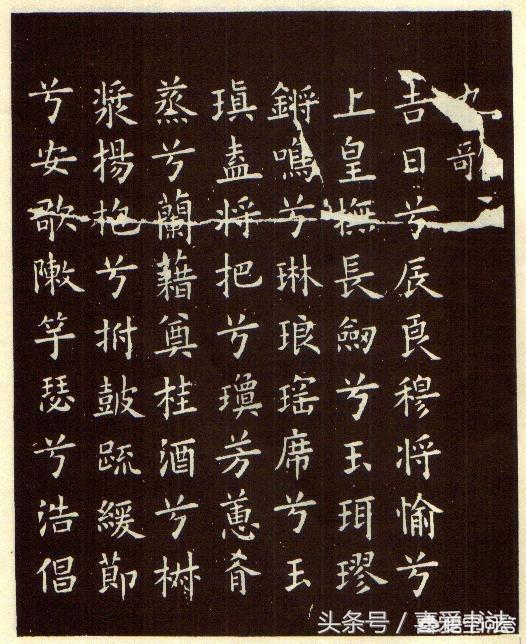 九歌
吉日兮辰良穆将愉兮
上皇撫長劒兮玉珥璆
鏘鳴兮琳琅瑤席兮玉
瑱盍将把兮瓊芳蕙肴
蒸兮蘭藉奠桂酒兮椒
漿揚枹兮拊鼓疏緩節
兮安歌陳竽瑟兮浩倡
头条号 / 喜爱书法